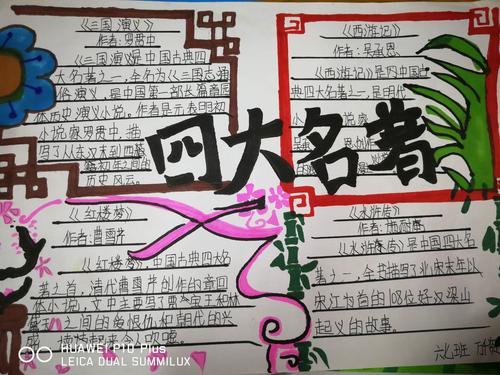 《三国演义》
作者:罗贯中
《三国演义》是中国古典四
大名著之一,全名为《三国志通
俗演义》是中国第一部长篇章回
体历史演义小说。作者是元末明初
小说家罗贯中,描
写了从东汉末到西晋
初年之间的
历史风云。
《西游记》
作者:吴承恩
《西游记》是中国古
典四大名著之一,是明代
小说家
四大名著
《红楼梦》
作者:曹雪芹
《红楼梦》,中国古典四大名
著之首,清代曹雪芹创作的章回
体小说,文中主要写了贾
之间的爱恨仇和朝代的兴
《水浒传》
作者:施耐庵
《水浒传》是中国四大名
著之一,全书描写了北宋末年以
宋江为首的108位好汉梁山
起义的故事。
六七班
HUAWEI P10 Plus
LEICA DUAL SUMMILUX